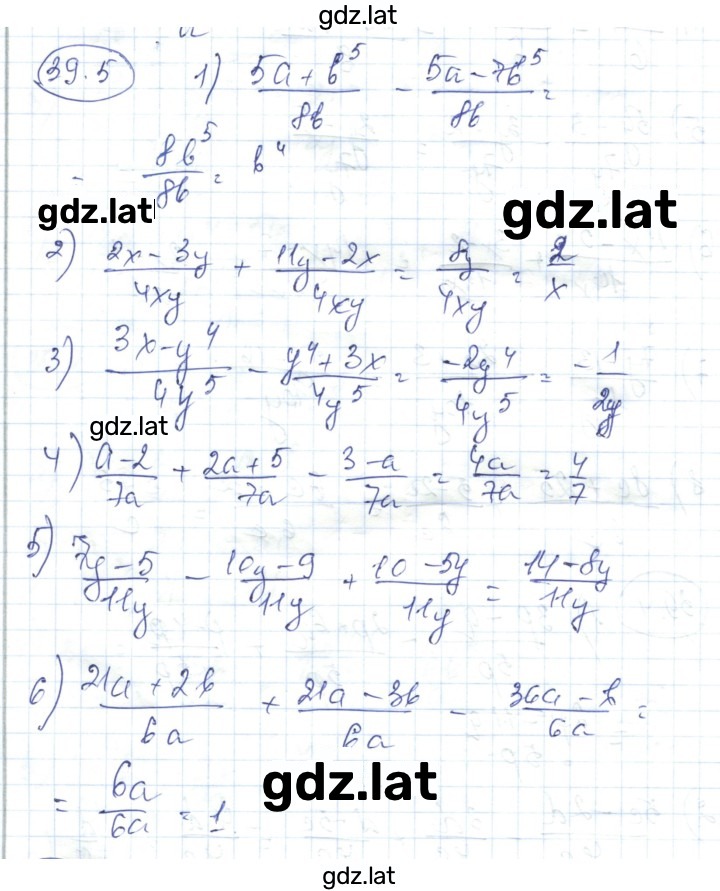 gdz.lat
39.5 1) (5a + b^5)/(8b) - (5a - 7b^5)/(8b) =
- (8b^5)/(8b) = b^4
gdz.lat gdz.lat
2) (2x - 3y)/(4xy) + (11y - 2x)/(4xy) = (8y)/(4xy) = 2/x
3) (3x - y^4)/(4y^5) - (y^4 + 3x)/(4y^5) = (-2y^4)/(4y^5) = - 1/(2y)
gdz.lat
4) (a - 2)/(7a) + (2a + 5)/(7a) - (3 - a)/(7a) = (4a)/(7a) = 4/7
5) (7y - 5)/(11y) - (10y - 9)/(11y) + (10 - 5y)/(11y) = (14 - 8y)/(11y)
6) (21a + 2b)/(6a) + (21a - 3b)/(6a) - (36a - b)/(6a) =
= (6a)/(6a) = 1
gdz.lat
gdz.lat